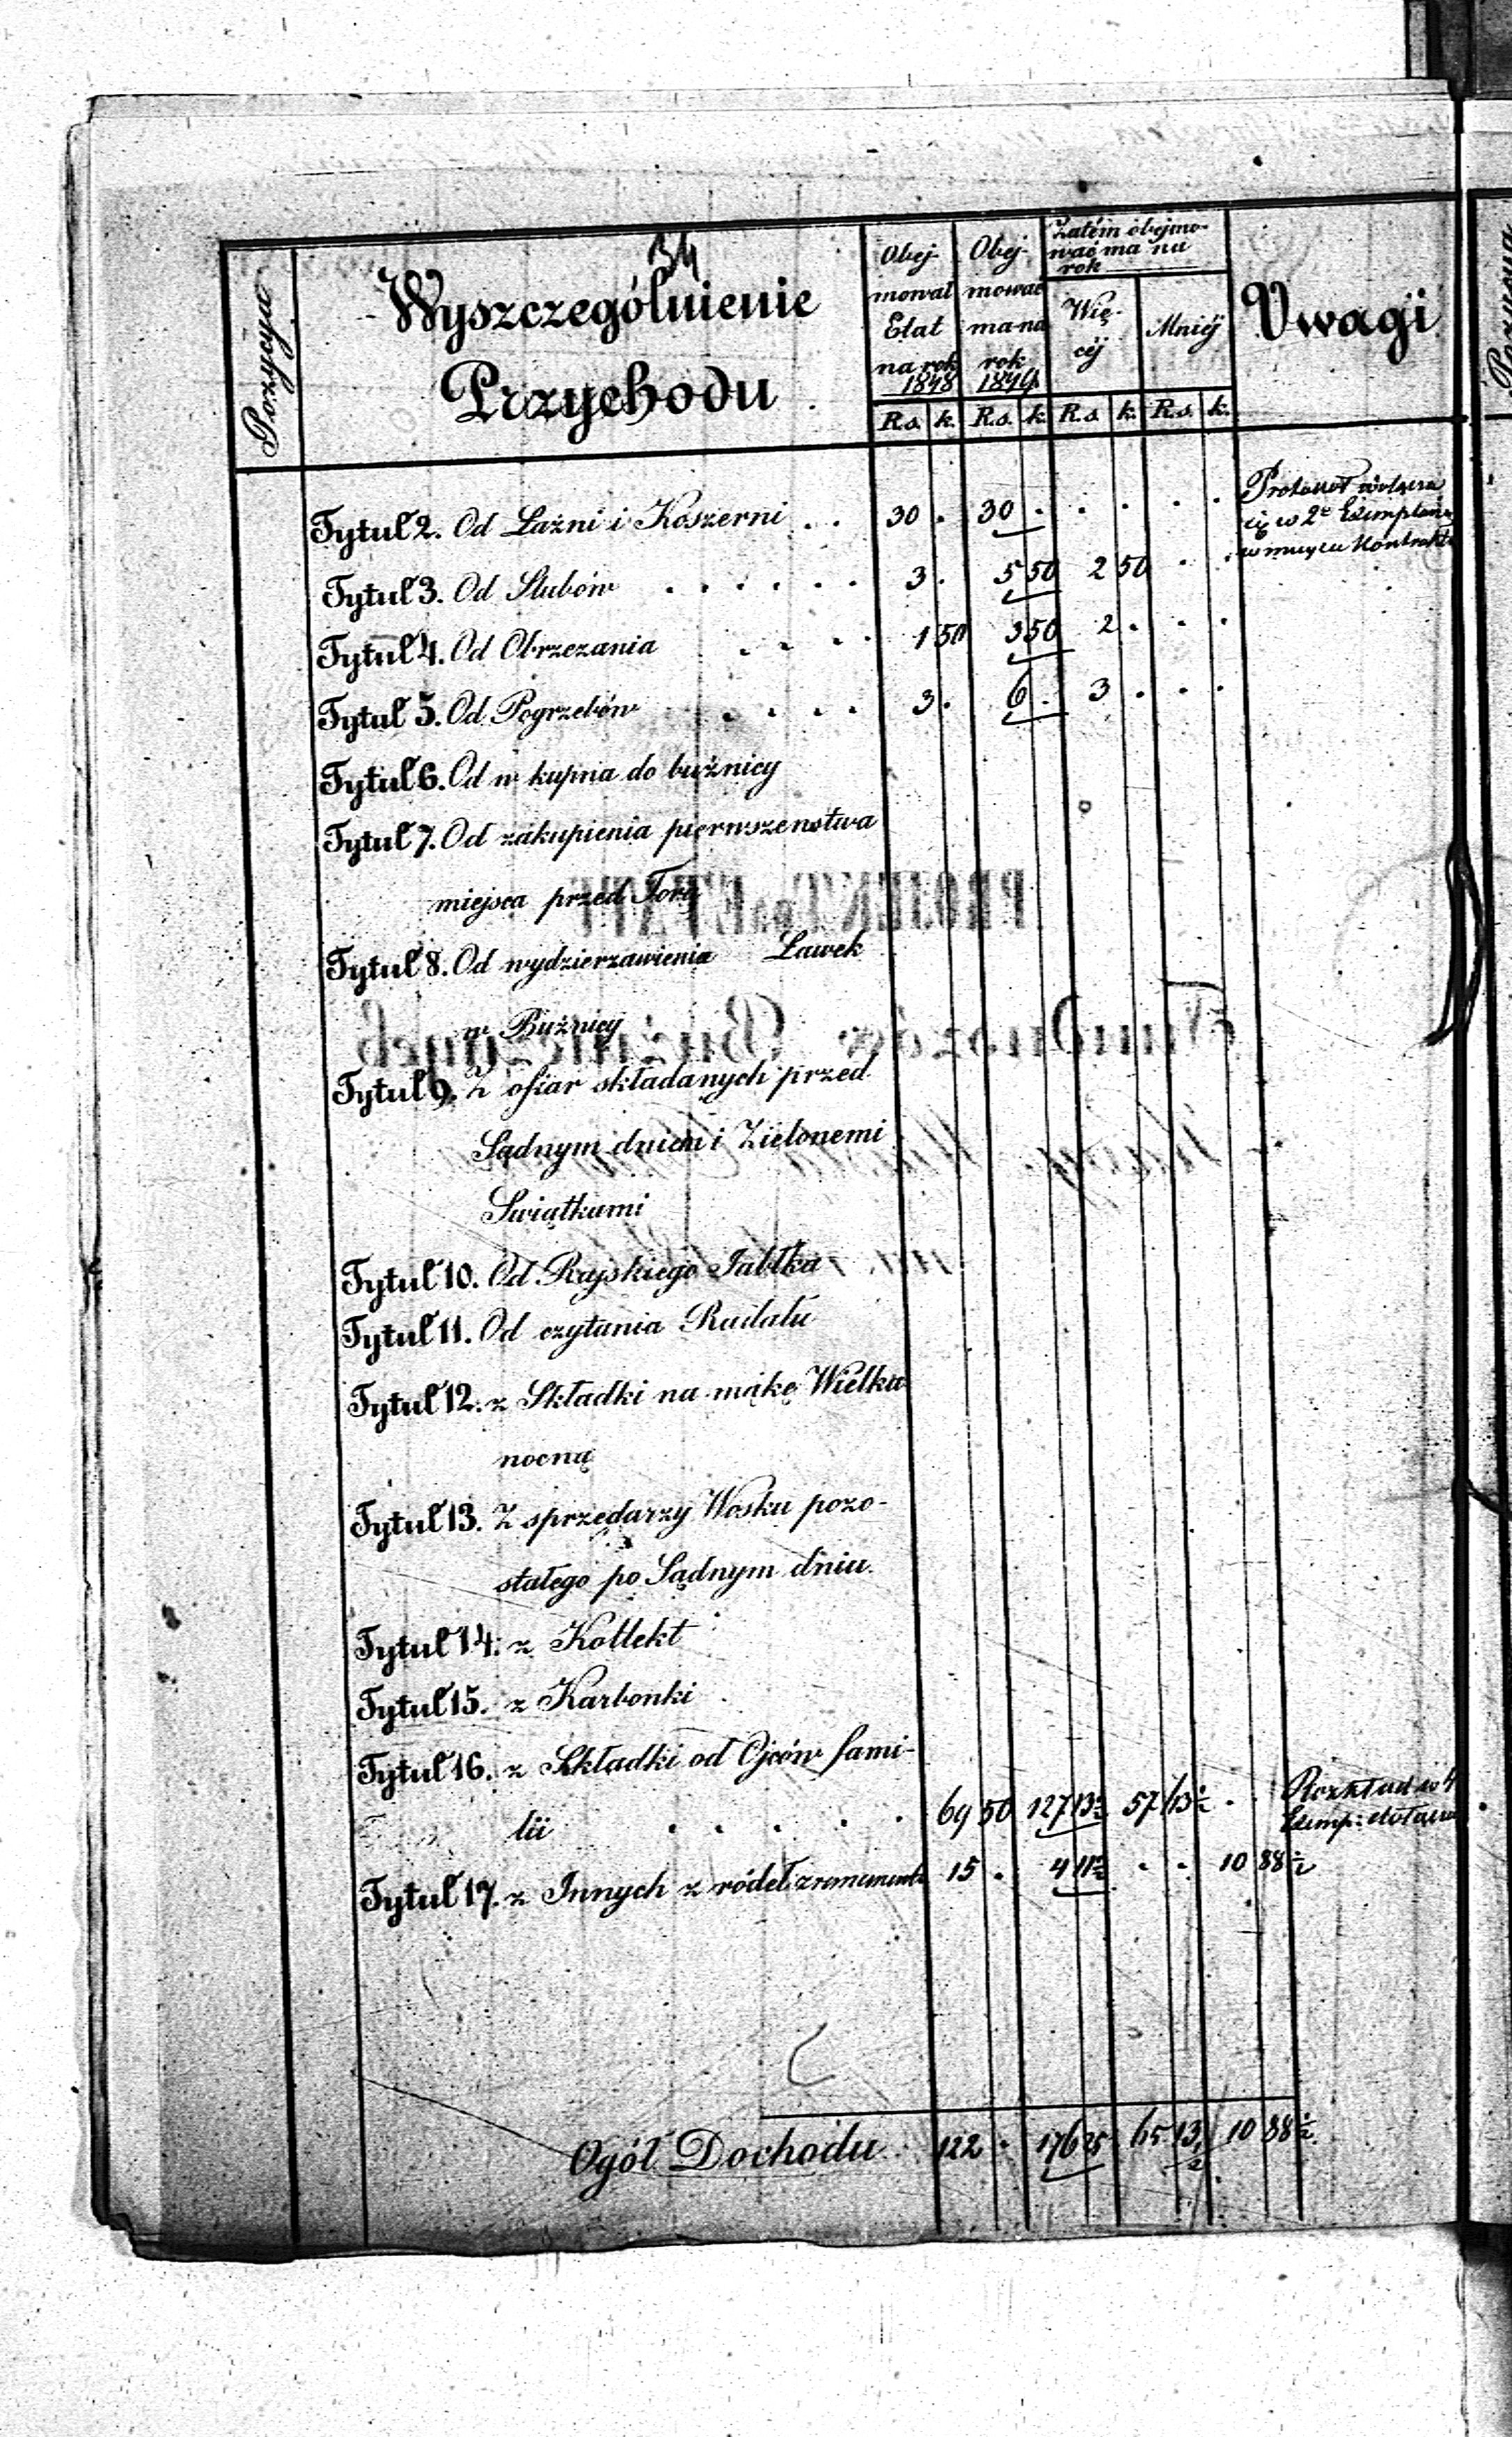 34
Pozycya
Wyszczególnienie
Przychodu
Obej-
mował
Etat
na rok
1848
Obej-
mować
ma na
rok
1849
Zatém obejmo-
wać ma na
rok
Wię-
céj
Mniéj
Uwagi
R.s. k. R.s. k. R.s. k. R.s. k.
Tytuł 2. Od Łaźni i Koszerni . . 30 . 30 . . . . .
Protokół
się w 2ch Exemplarzu
w miejscu Kontraktu
Tytuł 3. Od Slubów . . . . . . 3 . 5 50 2 50 . .
Tytuł 4. Od Obrzezania . . . . 1 50 3 50 2 . . .
Tytuł 5. Od Pogrzebów . . . . 3 . 6 . 3 . . .
Tytuł 6. Od w kupna do buźnicy
Tytuł 7. Od zakupienia pierwszenstwa
miejsca przed Torą
Tytuł 8. Od wydzierzawienia Ławek
w Buźnicy
Tytuł 9. Z ofiar składanych przed
Sądnym dniem i Zielonemi
Swiątkami
Tytuł 10. Od Rajskiego Jabłka
Tytuł 11. Od czytania Rudału
Tytuł 12. z Składki na mąkę Wielka
nocną
Tytuł 13. Z sprzedarzy Wosku pozo-
stałego po Sądnym dniu.
Tytuł 14. z Kollekt
Tytuł 15. z Karbonki
Tytuł 16. z Składki od Ojców fami-
lii . . . . . 69 50 127 13½ 57 63½ . .
Rozkład w 4
Exemp: dołącza
Tytuł 17. z Innych z ródeł 15 . 4 11½ . . 10 88½
Ogół Dochodu 122 . 176 25 65 13½ 10 88½